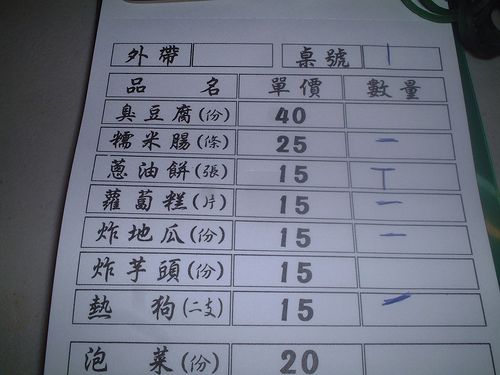 外帶 桌號 |
品名 單價 數量
臭豆腐(份) 40
糯米腸(條) 25 一
蔥油餅(張) 15 T
蘿蔔糕(片) 15 一
炸地瓜(份) 15 一
炸芋頭(份) 15
熱狗(二支) 15 一
泡菜(份) 20